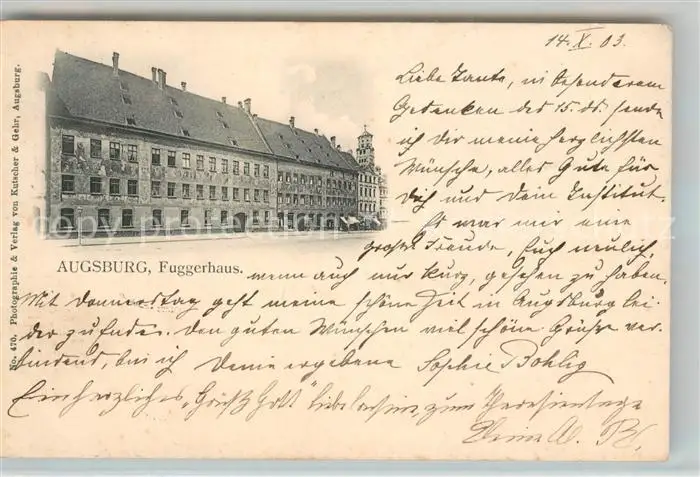 14. X. 03.
Liebe Tante, in besonderem
Gedenken des 15. ds. sende
ich dir meine herzlichsten
Wünsche, alles Gute für
Dich und Dein Institut.
Es war mir eine
große Freude, Euch neulich,
wenn auch nur kurz, gesehen zu haben.
Mit Donnerstag geht meine schöne Zeit in Augsburg lei-
der zu Ende. Den guten Wünschen viel schöne Grüße ver-
bindend, bin ich Deine ergebene Sophie Bohlig
Ein herzliches "Grüß Gott" liebe zum Theresientage
Deine A. B.
AUGSBURG, Fuggerhaus.
No. 470. Photographie & Verlag von Kutscher & Gehr, Augsburg.
copyright